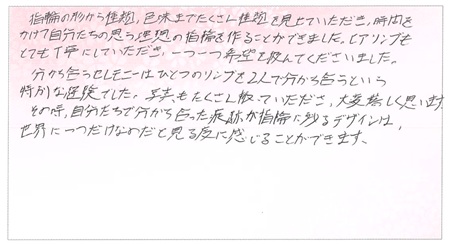 指輪の形から種類、色味までたくさん種類を見せていただき、時間を
かけて自分たちの思う理想の指輪を作ることができました。ヒアリングも
とても丁寧にしていただき、一つ一つ希望を汲んでくださいました。
分かち合うセレモニーはひとつのリングを2人で分かち合うという
特別な体験でした。写真もたくさん撮っていただき、大変嬉しく思います。
その際、自分たちで分かち合った痕跡が指輪に残るデザインは、
世界に一つだけなのだと見る度に感じることができます。